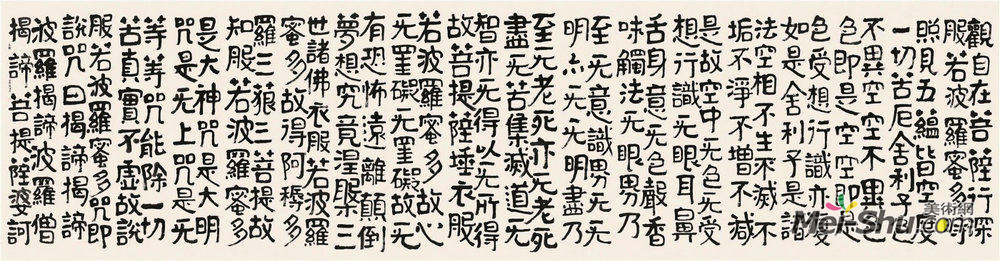 觀自在菩薩行深
服若波羅蜜多時
照見五蘊皆空度
一切苦厄舍利子色
不異空空不異色
色即是空空即是
色受想行識亦复
如是舍利子是諸
法空相不生不滅不
垢不淨不增不減
是故空中无色无受
想行識无眼耳鼻
舌身意无色聲香
味觸法无眼界乃
至无意識界无无
明亦无无明盡乃
至无老死亦无老死
盡无苦集滅道无
智亦无得以无所得
故菩提薩埵衣服
若波羅蜜多故心
无罣礙无罣礙故无
有恐怖遠離顛倒
夢想究竟涅槃三
世諸佛衣服若波羅
蜜多故得阿耨多
羅三藐三菩提故
知服若波羅蜜多
是大神咒是大明
咒是无上咒是无
等等咒能除一切
苦真實不虛故說
服若波羅蜜多咒即
說咒曰揭諦揭諦
波羅揭諦波羅僧
揭諦菩提薩婆訶
美術網
Mei-Shu.com